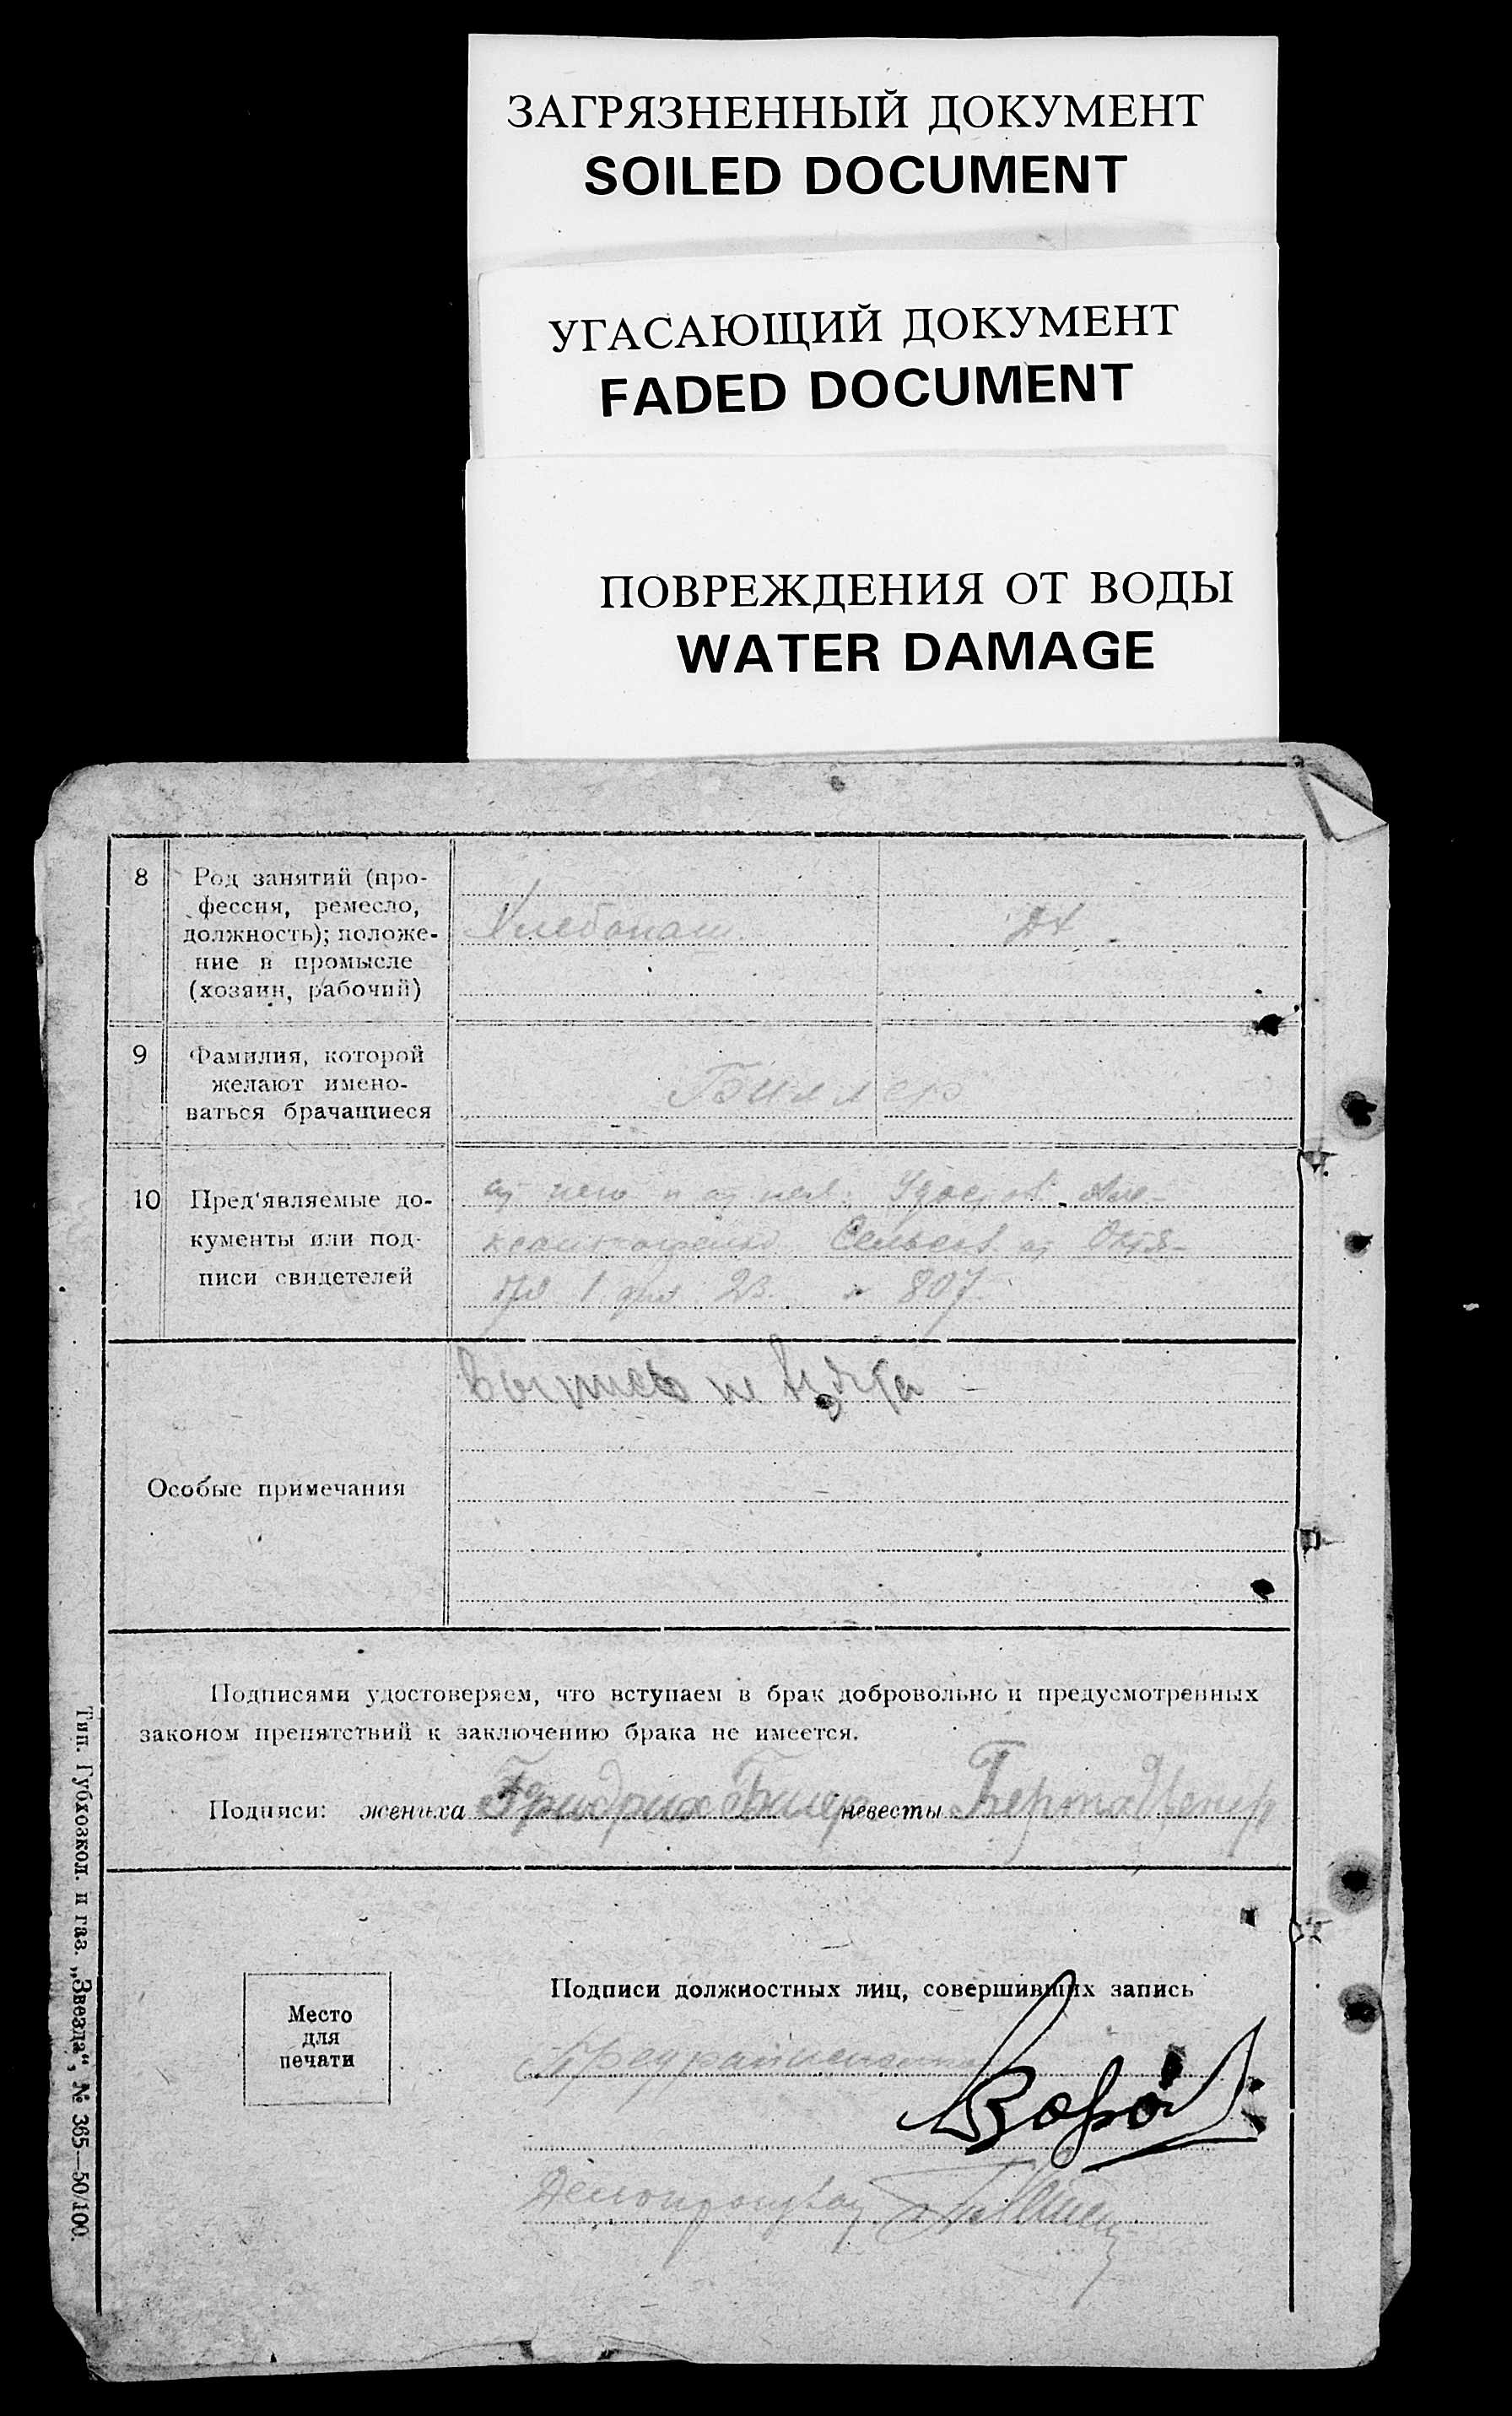 ЗАГРЯЗНЕННЫЙ ДОКУМЕНТ
SOILED DOCUMENT
УГАСАЮЩИЙ ДОКУМЕНТ
FADED DOCUMENT
ПОВРЕЖДЕНИЯ ОТ ВОДЫ
WATER DAMAGE
8 Род занятий (про-
фессия, ремесло,
должность); положе-
ние в промысле
(хозяин, рабочий)
Хлебопаш
9 Фамилия, которой
желают имено-
ваться брачащиеся
Биллер
10 Пред'являемые до-
кументы или под-
писи свидетелей
от него и от нея: Удостов. Але-
Сельсов. от Октя-
бря 1 дня 23. № 807.
Особые примечания
Подписями удостоверяем, что вступаем в брак добровольно и предусмотренных
законом препятствий к заключению брака не имеется.
Подписи: жениха Фридрих невесты Берта
Место
для
печати
Подписи должностных лиц, совершивших запись
Делопроизвод
Тип. Губхозкол. и газ. „Звезда“, № 365—50/100.